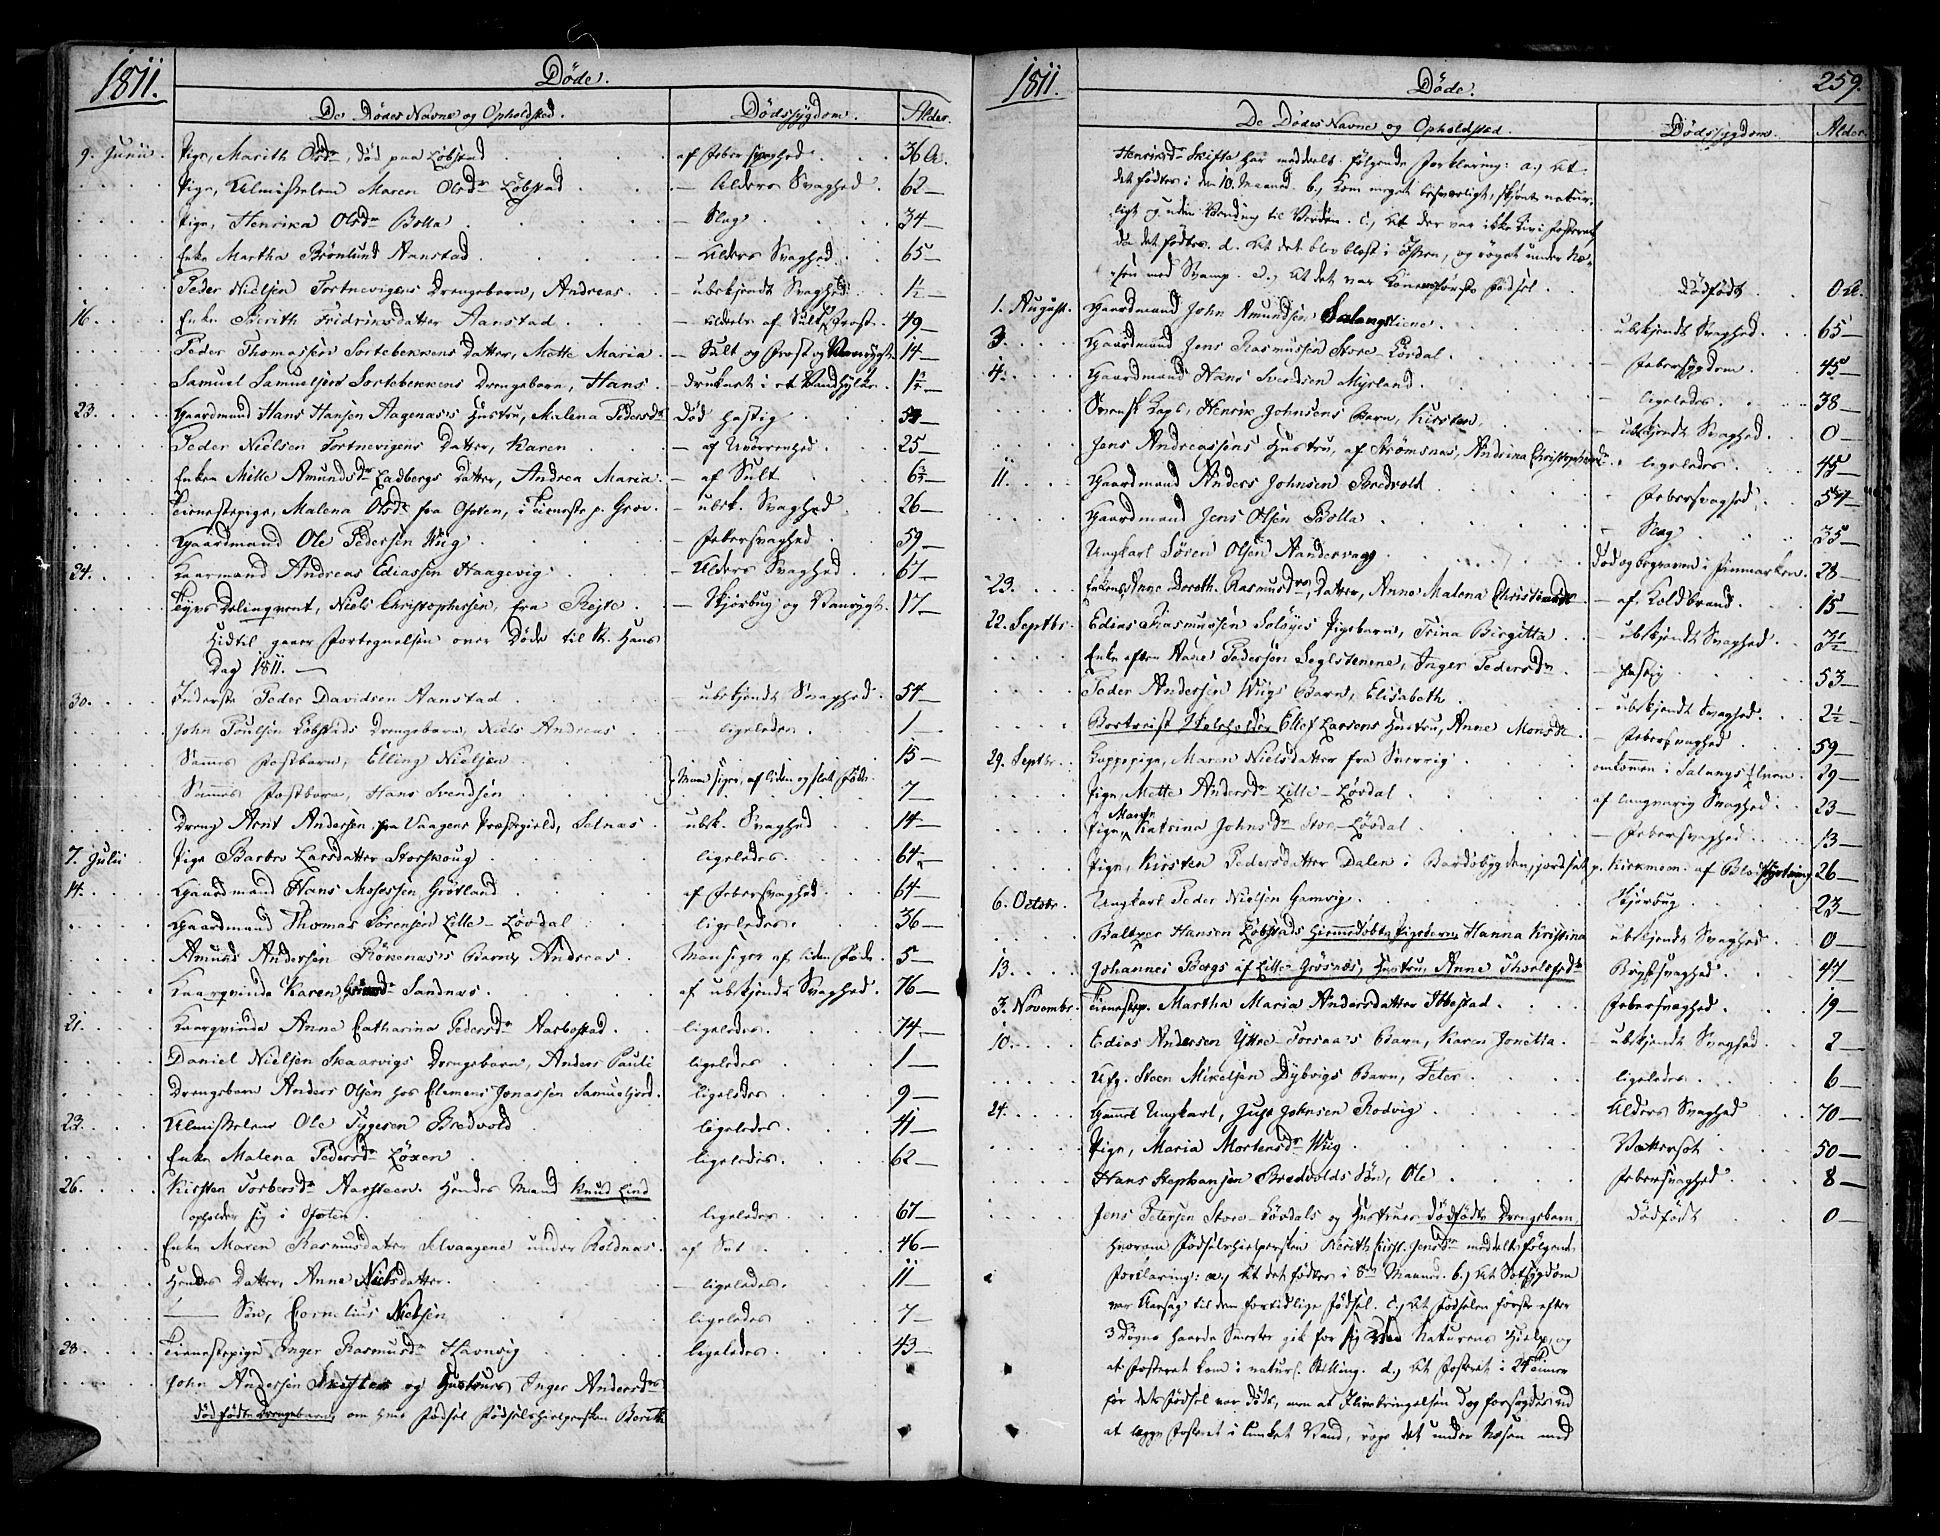 1811.
Døde.
De Dødes Navne og Opholdsted. Dødssygdom. Alder.
9. Junii. Pige, Marith Olsdr, død paa Løbstad af Feber svaghed. 36 A.
Pige, Almisselem Maren Olsdr Løbstad — Alders Svaghed. 62 —
Pige, Henrika Olsdr Bolla — Slag 34 —
Enke Martha Brønlund Aanstad — Alders Svaghed. 65 —
Peder Nielsen Fortnevigens Drengebarn, Andreas. — ubekjendt Svaghed. 1½ —
16. Enke Berith Fridriksdatter Aanstad — af Sult, Frost. 49 —
Peder Thomassens Sortebekkens Datter, Mette Maria. — Sult og Frost og Vanrygt. 14 —
Samuel Samuelsens Sortebekkens Drengebarn, Hans. druknet i et Vandhylke. 1½ —
23. Gaardmand Hans Hansen Aagenæs's Hustru, Malena Pedersdr Død hastig
Peder Nielsen Fortnevigens Datter, Karen — af 25 —
Enken Mette Amundsdr Ladbergs Datter, Andrea Maria. — af Sult
Tienestepige, Malena Olsdr fra Ofoten, i Tieneste p. Grov. — ubek. Svaghed. 26 —
Gaardmand Ole Pedersen Wiig — Febersvaghed 59 —
24. Gaardmand Andreas Ediassen Haagevig — Alders Svaghed 67 —
Delinqvent, Niels Christophersen, fra Rejte. — Skjørbug og Vanrygt. 17 —
Hidtil gaaer Fortegnelsen over Døde til St. Hans
Dag 1811. —
30. Inderste Peder Davidsen Aanstad — ubekjendt Svaghed. 54 —
John Poulsen Løbstads Drengebarn, Niels Andreas — ligeledes. 1 —
Sammes Fostbarn, Elling Nielsen 15 —
Man siger, af liden og slet Føde.
Sammes Fostbarn, Hans Svendsen 7 —
Dreng Arnt Andersen fra Vaagens Præstegield, Selnæs. ubek. Svaghed 14 —
7. Julii Pige Barbro Larsdatter Storskoug ligeledes. 64 —
14. Gaardmand Hans Mosessen Grøtland af Febersvaghed. 64 —
Gaardmand Thomas Sørensen Lille-Løvdal ligeledes. 36 —
Amund Andersen Røkenæs's Barn, Andreas Man siger af liden Føde. 5 —
Kaarqvinde Karen Sandnæs. af ubekjendt Svaghed. 76 —
21. Kaarqvinde Anne Catharina Pedersdr Aarbostad ligeledes. 74 —
Daniel Nielsen Skaarvigs Drengebarn, Anders Pauli ligeledes 1 —
Drengebarn Anders Olsen hos Clemens Jonassen Samuelsjord. ligeledes. 9 —
23. Almisselem Ole Tygesen Bredvold ligeledes. 41 —
Enke Malena Pedersdr Løxen ligeledes. 62 —
26. Kirsten Torbersdr Aarsteen. Hendes Mand Knud Lind
opholder sig i Ofoten. ligeledes. 67 —
Enke Maren Rasmusdatter Selvaagene under Roldnæs. af Sut 46 —
Hendes Datter, Anne Nielsdatter. — ligeledes. 11 —
— Søn, Cornelius Nielsen ligeledes 7 —
28. Tienestepige Inger Rasmusdr Havnvig ligeledes. 43 —
John Andersen Skifte og Hustrues Inger Andersdrs
dødfødte Drengebarn, om hvis Fødsel Fødselshielpersken Berith
1811.
Døde.
259.
De Dødes Navne og Opholdsted. Dødssygdom. Alder.
Henriksdr Skifte har meddelt følgende Forklaring: a.) At
det fødtes i den 10. Maaned. b.) Kom meget besværligt, skjønt natur-
ligt og uden Vending til Verden. c.) At der var ikke Liv i Fosteret
da det fødtes. d. At det blev blæst i Issen, og røget under Næ-
sen med Svamp. e.) At det var Konens første Fødsel. Dødfødt 0 A.
1. August. Gaardmand John Amundsen Salangsliene. ubekjendt Svaghed. 65 —
3. Gaardmand Jens Rasmussen Store-Løvdal. — Febersygdom. 45 —
4. Gaardmand Hans Svendsen Myrland — ligeledes. 38 —
Svensk Henrik Johnsens Barn, Kirsten. — ubekjendt Svaghed. 0 —
Jens Andreassens Hustru, af Strømsnæs, Andrina Christophersdr. ligeledes. 45 —
11. Gaardmand Anders Johnsen Bredvold — Febersvaghed. 54 —
Gaardmand Jens Olsen Bolla — Slag 35 —
Ungkarl Søren Olsen Aandervaag Død og begraven i Finmarken. 28 —
23. Enkens Anne Doroth. Rasmusdrs Datter, Anne Malena — af Koldbrand. 15 —
22. Septbr. Edias Rasmussen Soløyes Pigebarn, Trina Birgitta — ubekjendt Svaghed.
Enke efter Aane Pedersen Seglstenene, Inger Pedersdr — hastig 53 —
Peder Andersen Wiigs Barn, Elisabeth — ubekjendt Svaghed. 2½ —
Bortreist Skoleholder Ellef Larsens Hustru, Anne Monsdr — Febersvaghed 59 —
29. Septbr. Lappepige, Maren Nielsdatter fra Sverrig. omkommen i Salangs Elven. 29 —
Pige, Mette Andersdr Lille-Løvdal af langvarig Svaghed. 23 —
Pige, Maren Katrina Johnsdr Store-Løvdal — Febersvaghed 13 —
Pige, Kirsten Pedersdatter Dalen i Bardobygden, jordsat p. Kirkmoen. af Blodstyrtning 26 —
6. Octobr. Ungkarl Peder Nielsen Gamvig. Skjørbug 23 —
Baltzer Hansen Løbstads hiemmedøbte Pigebarn, Hanna Kristina ubekjendt Svaghed 0 —
13. Johannes Bergs af Lille-Grøsnæs, Hustru, Anne Thorlefsdr Brystsvaghed. 47 —
3. Novembr. Tienestep. Martha Maria Andersdatter Ibbestad. Febersvaghed 19 —
10. Edias Andersen Ytre Forsaa's Barn, Karen Jonetta. — ubekjendt Svaghed. 2 —
Ufg. Steen Mikelsen Dybvigs Barn, Peter. ligeledes. 6 —
24. Gammel Ungkarl, Johnsen Rodvig Alders Svaghed 70 —
Pige, Maria Mortensdr Wiig Vattersot 50 —
Hans Stephansen Bredvolds Søn, Ole Febersvaghed 8 —
Jens Petersen Store-Løvdals og Hustrues dødfødte Drengebarn, Dødfødt 0 —
hvorom Fødselshielpersken Berith Kirst. Jensdr meddelte følgende
Forklaring: a.) At det fødtes i 8de Maaned. b.) At Sotsygdom
var Aarsag til den fortidlige Fødsel. c.) At Fødselen første efter
3 Døgns haarde Smerter gik for sig ved Naturens Hielp, og
at Fosteret kom i naturl. Stilling. d.) At Fosteret i 24 Timer
før dets Fødsel var dødt, men at Ilivebringelsen dog forsøgdes ved
at lægge Fosteret i lunket Vand, røge det under Næsen med